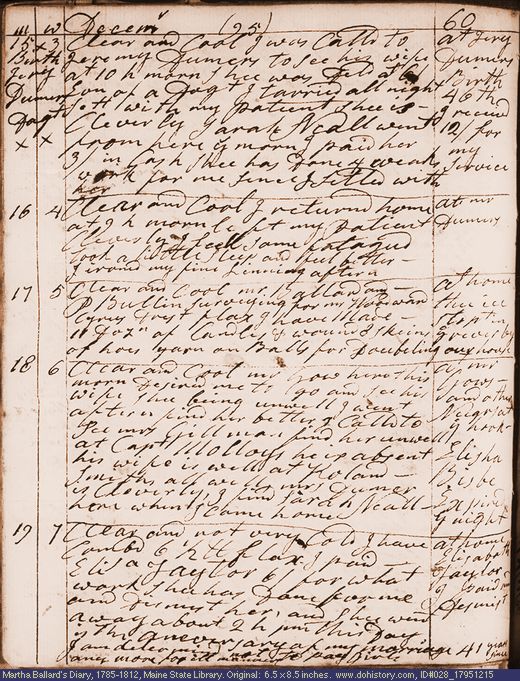 m w Decemr (95) 60
15 x 3 Clear and Cool I was Calld to at Jery
Birth Jeremy Dumers to see his wife Dumers
Jery at 10 h morn Shee was Deld at x Birth
Dumers Son of a Dagt I tarried all night 46th
Dagt with my patient shee is receivd
x x Cleverly Sarah Neall went 12/ for
from here ys morn I paid her my
3/ in Cash Shee has Done 4 weaks Service
work for me sinc I setled with
her
16 4 Clear and Cool I returnd home at mr
at h morn left my patient Dumers
Cleverly I feel some fatagud
took a little sleep and feel better
I irond my fine Linning aftern
17 5 Clear and Cool mr Ballard at home
P Bullin surveying for mr
Cyrus Drest flax I have made
11 Dozn of Candles & wound 8 skeins
of hoes yarn on Balls for Doubeling our house
18 6 Clear and Cool mr Gow here this at mr
morn Desired me to go and see his Gows
wife Shee being unwell I went and others
aftern find her better I Calld to
see mrs Gillman find her unwell
at Capt Molloys he is absent
his wife is well at Roland Elisha
Smiths, all well mrs Dumer Bisbe
is Cleverly, I find Sarah Neall Expird
here when I came home ys night
19 7 Clear and not very Cold I have at home
Combd 6 lb flax I paid Elisabeth
Elisa Taylor 6/ for what Taylor
work Shee has Done for me
and Dismist her, and Shee went Dismist
away about 2 h pm this Day
is the aneversary of my marriage 41 years
I am determind